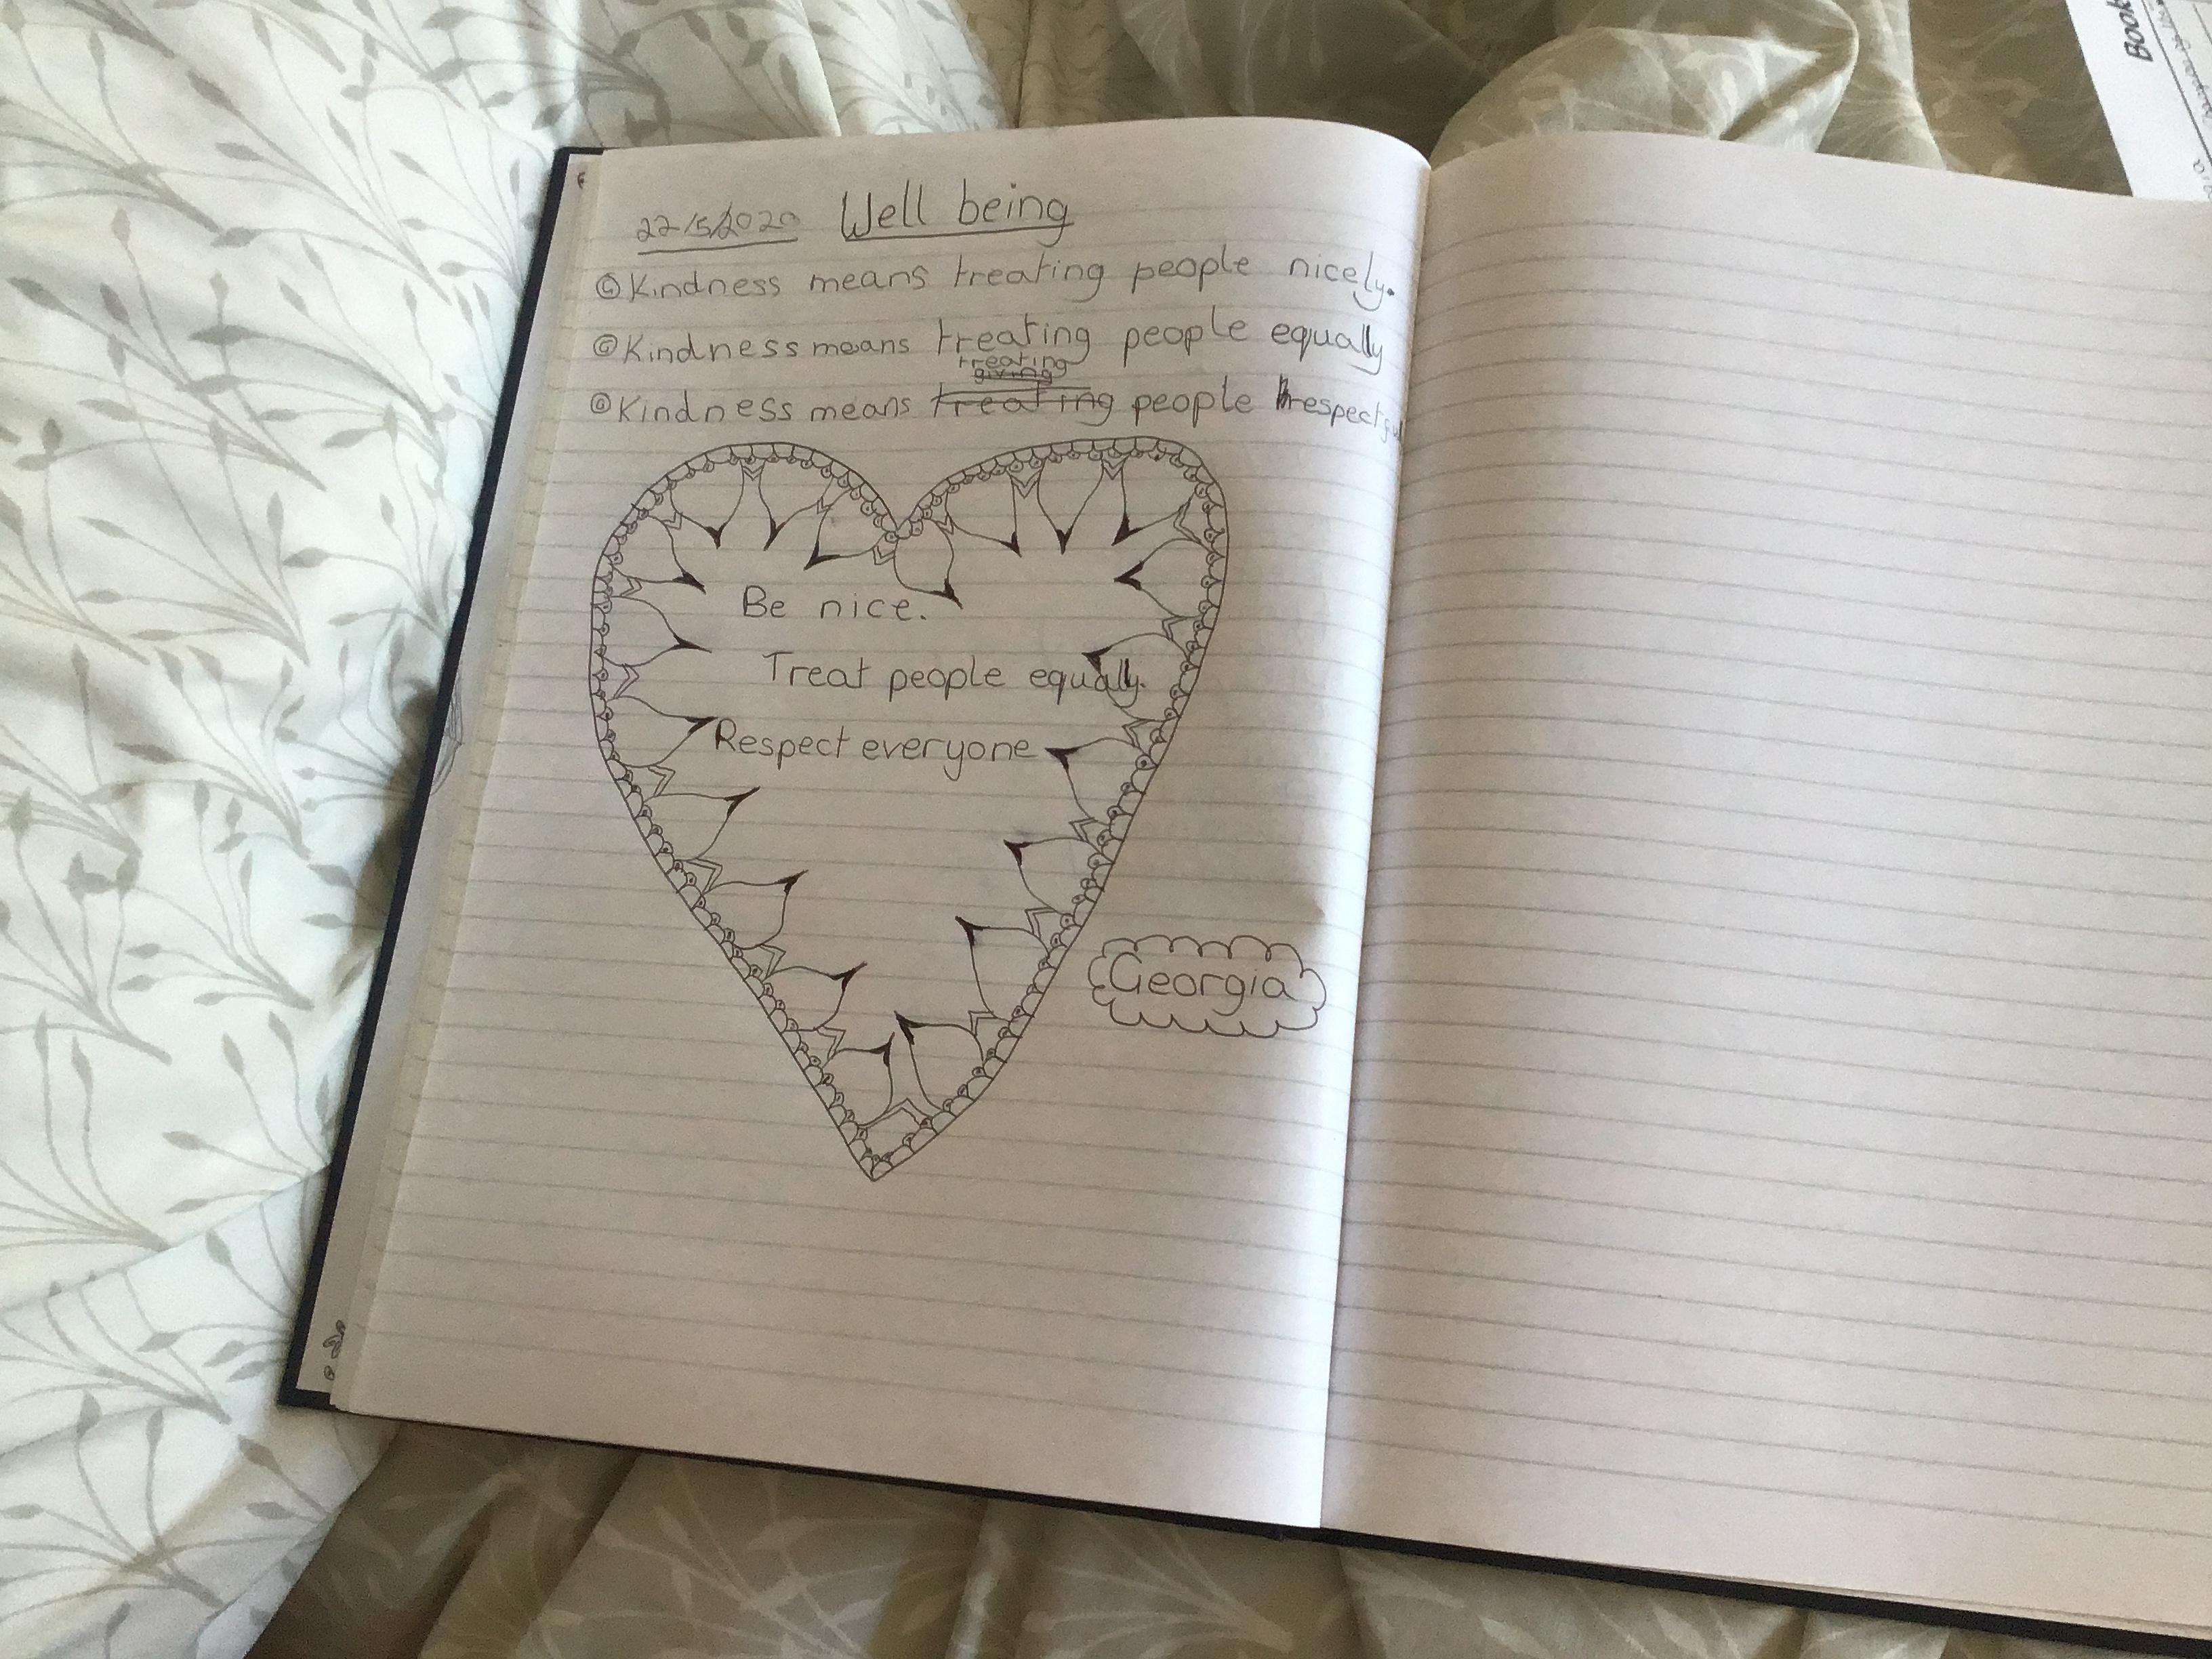 22/5/2020 Well being
Kindness means treating people nicely.
Kindness means treating people equally
treating
giving
Kindness means treating people respectful
Be nice.
Treat people equally.
Respect everyone
Georgia
Book